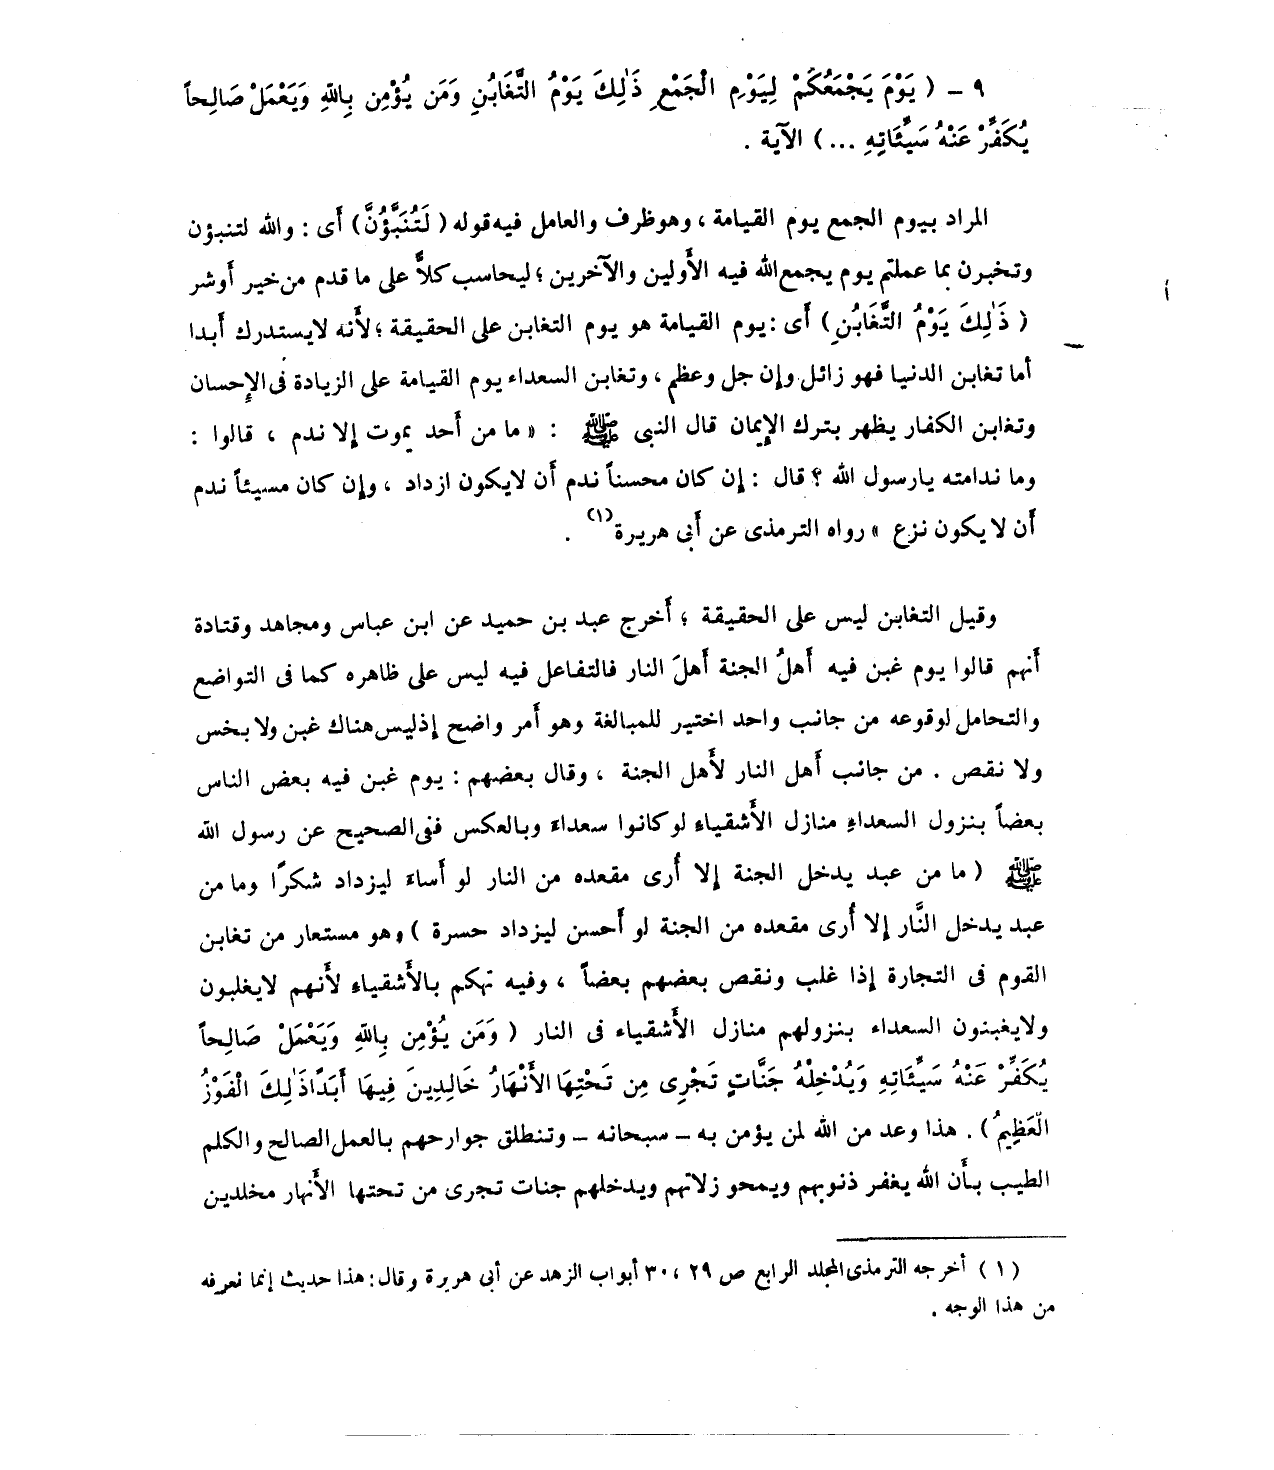 ٩ - ( يَوْمَ يَجْمَعُكُمْ لِيَوْمِ الْجَمْعِ ذَٰلِكَ يَوْمُ التَّغَابُنِ وَمَن يُؤْمِن بِاللهِ وَيَعْمَلْ صَالِحاً
يُكَفِّرْ عَنْهُ سَيِّئَاتِهِ ... ) الآية .
المراد بيوم الجمع يوم القيامة ، وهو ظرف والعامل فيه قوله ( لَتُنَبَّؤُنَّ ) أى : والله لتنبؤن
وتخبرن بما عملتم يوم يجمع الله فيه الأَولين والآخرين ؛ ليحاسب كلاًّ على ما قدم من خير أَو شر
( ذَٰلِكَ يَوْمُ التَّغَابُنِ ) أى : يوم القيامة هو يوم التغابن على الحقيقة ؛ لأَنه لا يستدرك أَبدا
أما تغابن الدنيا فهو زائل وإن جل وعظم ، وتغابن السعداء يوم القيامة على الزيادة فى الإحسان
وتغابن الكفار يظهر بترك الإيمان قال النبى ﷺ : « ما من أَحد يموت إلا ندم ، قالوا :
وما ندامته يا رسول الله ؟ قال : إن كان محسناً ندم أَن لا يكون ازداد ، وإن كان مسيئاً ندم
أَن لا يكون نزع » رواه الترمذى عن أَبى هريرة (١) .
وقيل التغابن ليس على الحقيقة ؛ أَخرج عبد بن حميد عن ابن عباس ومجاهد وقتادة
أَنهم قالوا يوم غبن فيه أَهلُ الجنة أَهلَ النار فالتفاعل فيه ليس على ظاهره كما فى التواضع
والتحامل لوقوعه من جانب واحد اختير للمبالغة وهو أَمر واضح إذ ليس هناك غبن ولا بخس
ولا نقص . من جانب أَهل النار لأَهل الجنة ، وقال بعضهم : يوم غبن فيه بعض الناس
بعضاً بنزول السعداءِ منازل الأَشقياءِ لو كانوا سعداءَ وبالعكس ففى الصحيح عن رسول الله
ﷺ ( ما من عبد يدخل الجنة إلا أُرى مقعده من النار لو أَساءَ ليزداد شكرًا وما من
عبد يدخل النَّار إلا أُرى مقعده من الجنة لو أَحسن ليزداد حسرة ) وهو مستعار من تغابن
القوم فى التجارة إذا غلب ونقص بعضهم بعضاً ، وفيه تهكم بالأَشقياءِ لأَنهم لا يغلبون
ولا يغبنون السعداء بنزولهم منازل الأَشقياء فى النار ( وَمَن يُؤْمِن بِاللهِ وَيَعْمَلْ صَالِحاً
يُكَفِّرْ عَنْهُ سَيِّئَاتِهِ وَيُدْخِلْهُ جَنَّاتٍ تَجْرِى مِن تَحْتِهَا الأَنْهَارُ خَالِدِينَ فِيهَا أَبَدًا ذَٰلِكَ الْفَوْزُ
الْعَظِيمُ ) . هذا وعد من الله لمن يؤمن به - سبحانه - وتنطلق جوارحهم بالعمل الصالح والكلم
الطيب بأَن الله يغفر ذنوبهم ويمحو زلاتهم ويدخلهم جنات تجرى من تحتها الأَنهار مخلدين
( ١ ) أخرجه الترمذى المجلد الرابع ص ٢٩ ، ٣٠ أبواب الزهد عن أبى هريرة وقال : هذا حديث إنما نعرفه
من هذا الوجه .